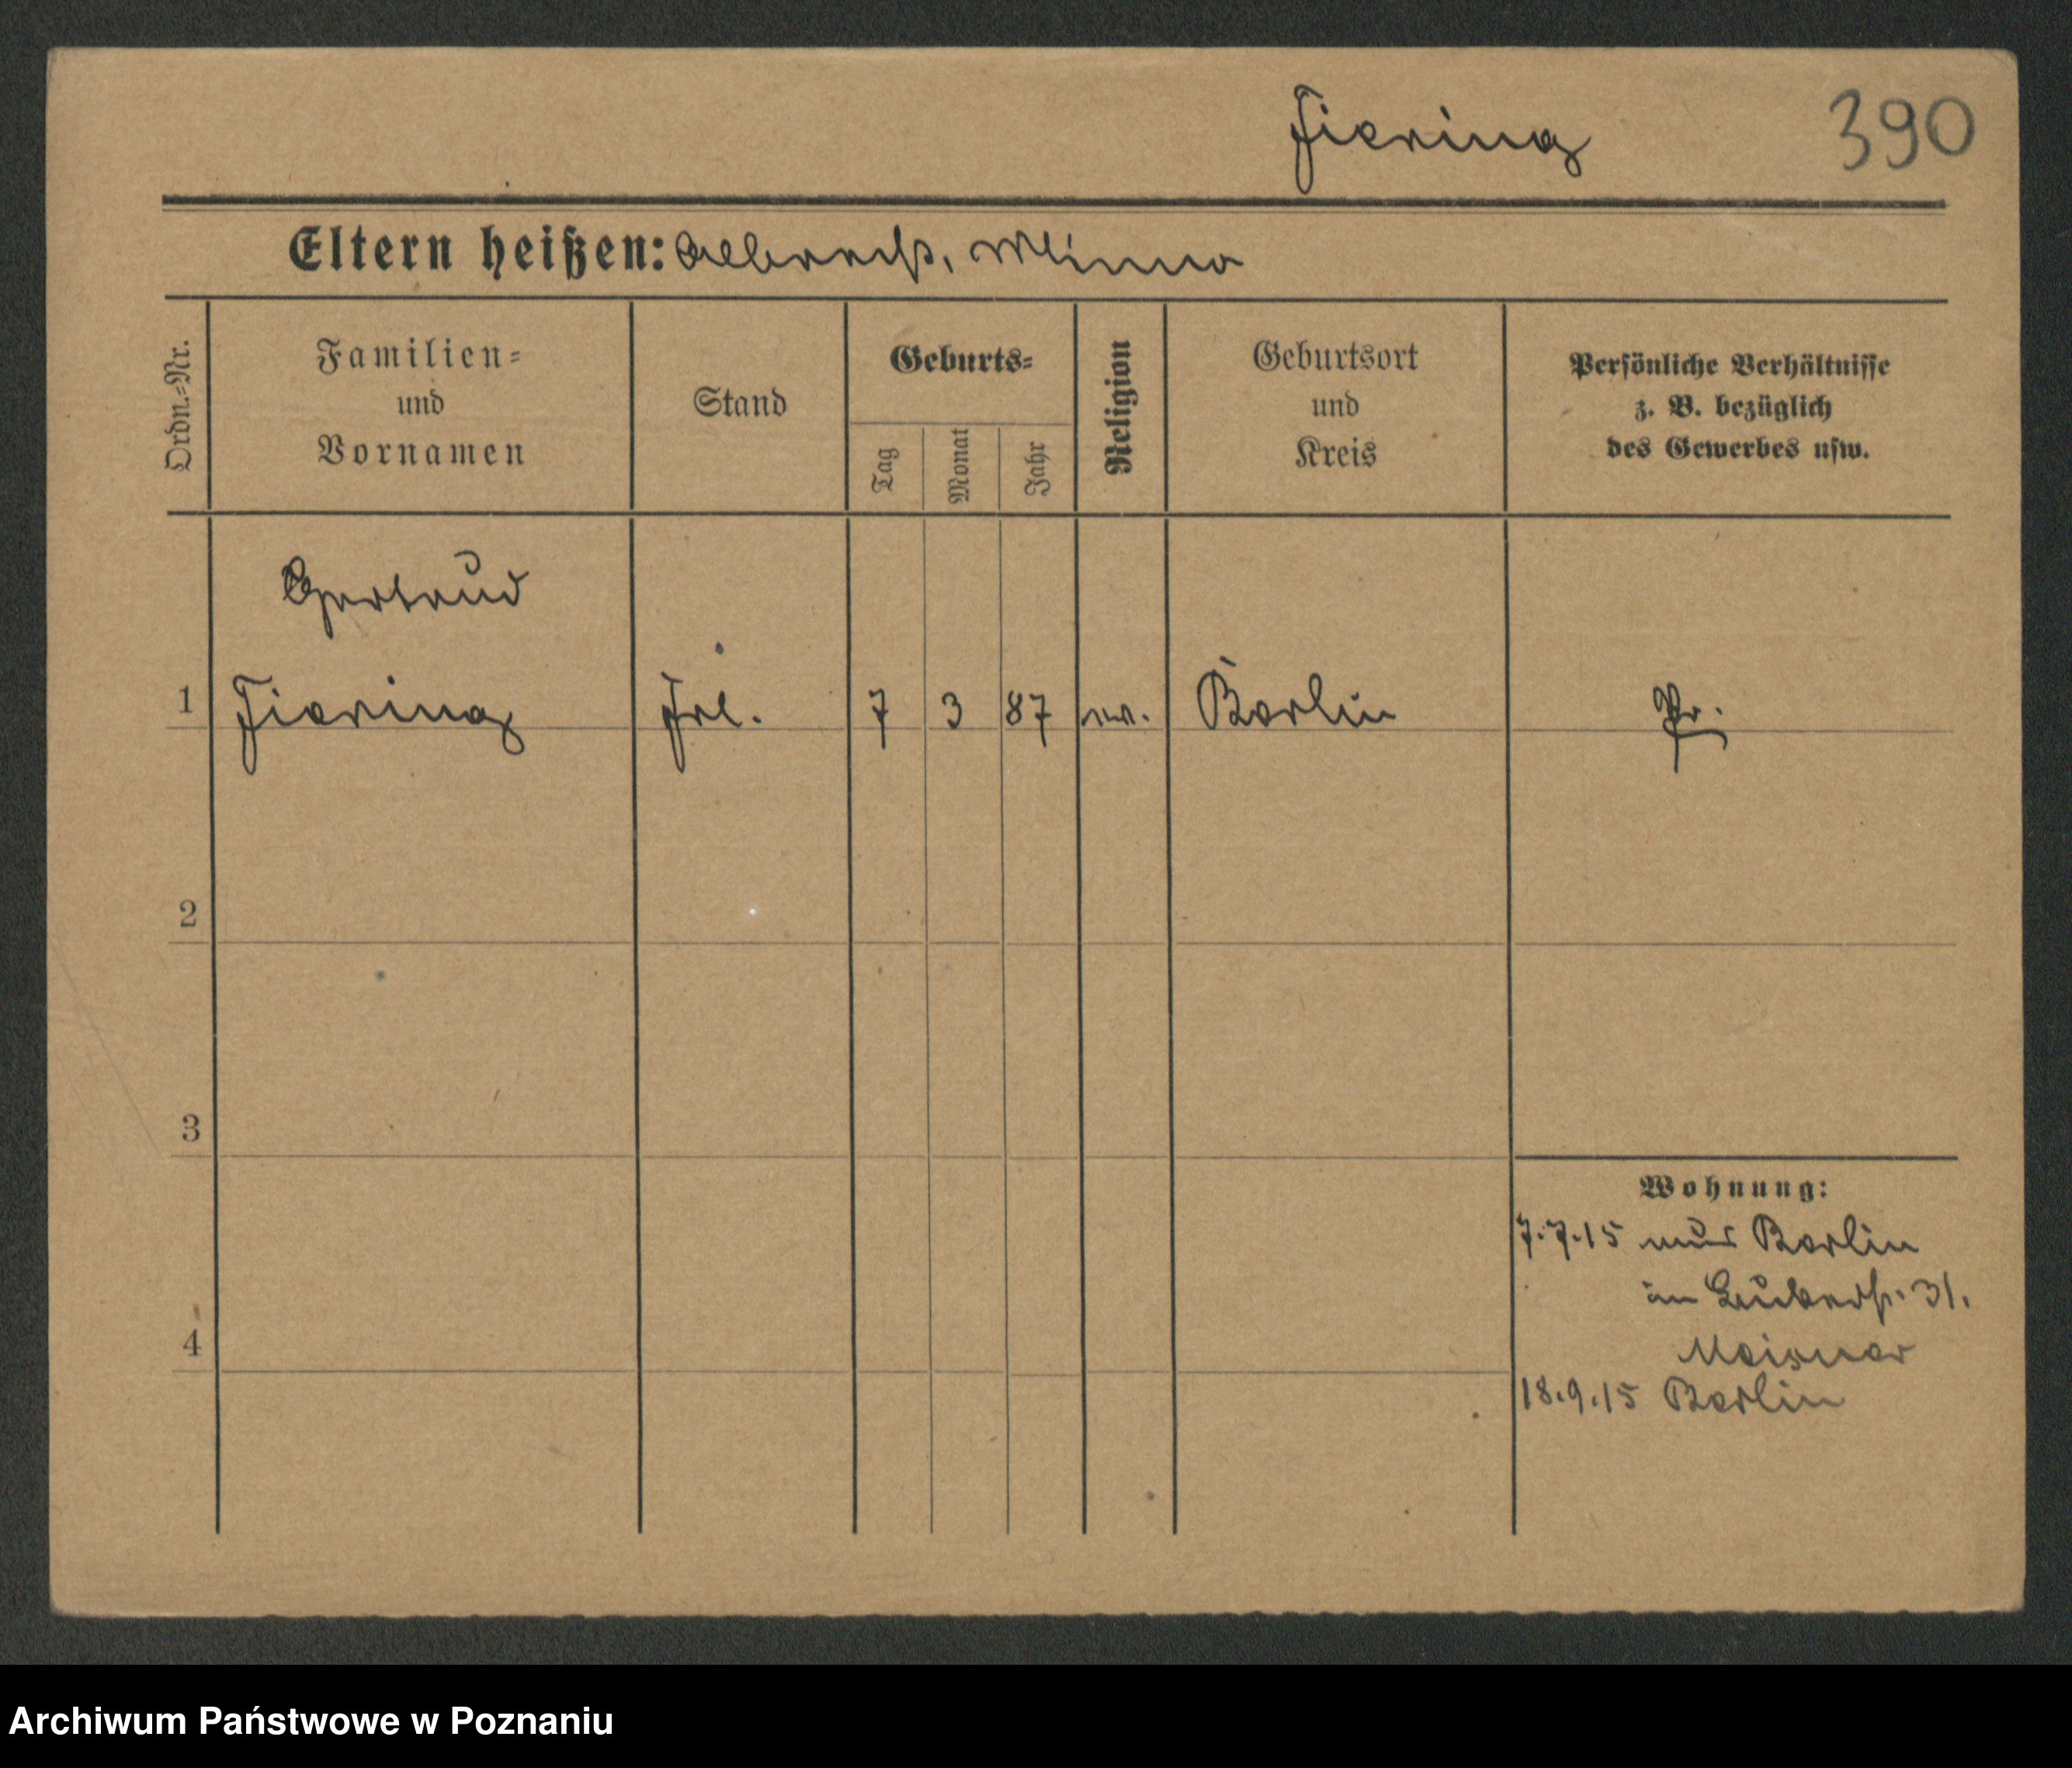 Fiering 390
Eltern heißen: Albrecht, Minna
Ordn.=Nr.
Familien=
und
Vornamen
Stand
Geburts=
Tag
Monat
Jahr
Religion
Geburtsort
und
Kreis
Persönliche Verhältnisse
z. B. bezüglich
des Gewerbes usw.
Gertrud
1 Fiering Frl. 7 3 87 ev. Berlin Pr.
2
3
Wohnung:
7.7.15 aus Berlin
31.
4
Meisner
18.9.15 Berlin
Archiwum Państwowe w Poznaniu